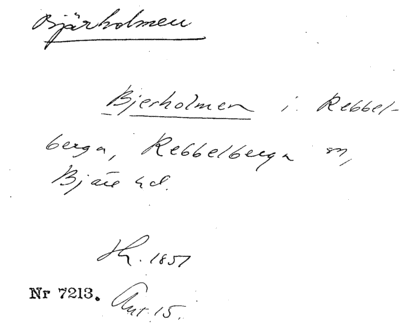 Bjärholmen
Bjerholmen i Rebbel-
berga, Rebbelberga sn,
Bjäre hd.
Sk. 1851
Nr 7213. Avr. 15.